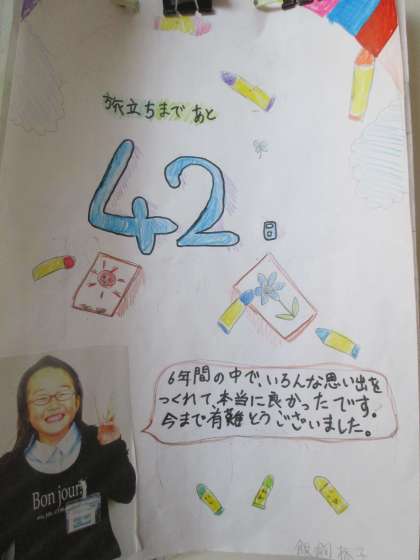 旅立ちまであと
42日
6年間の中で、いろんな思い出を
つくれて、本当に良かったです。
今まで有難とうございました。
Bon jour!